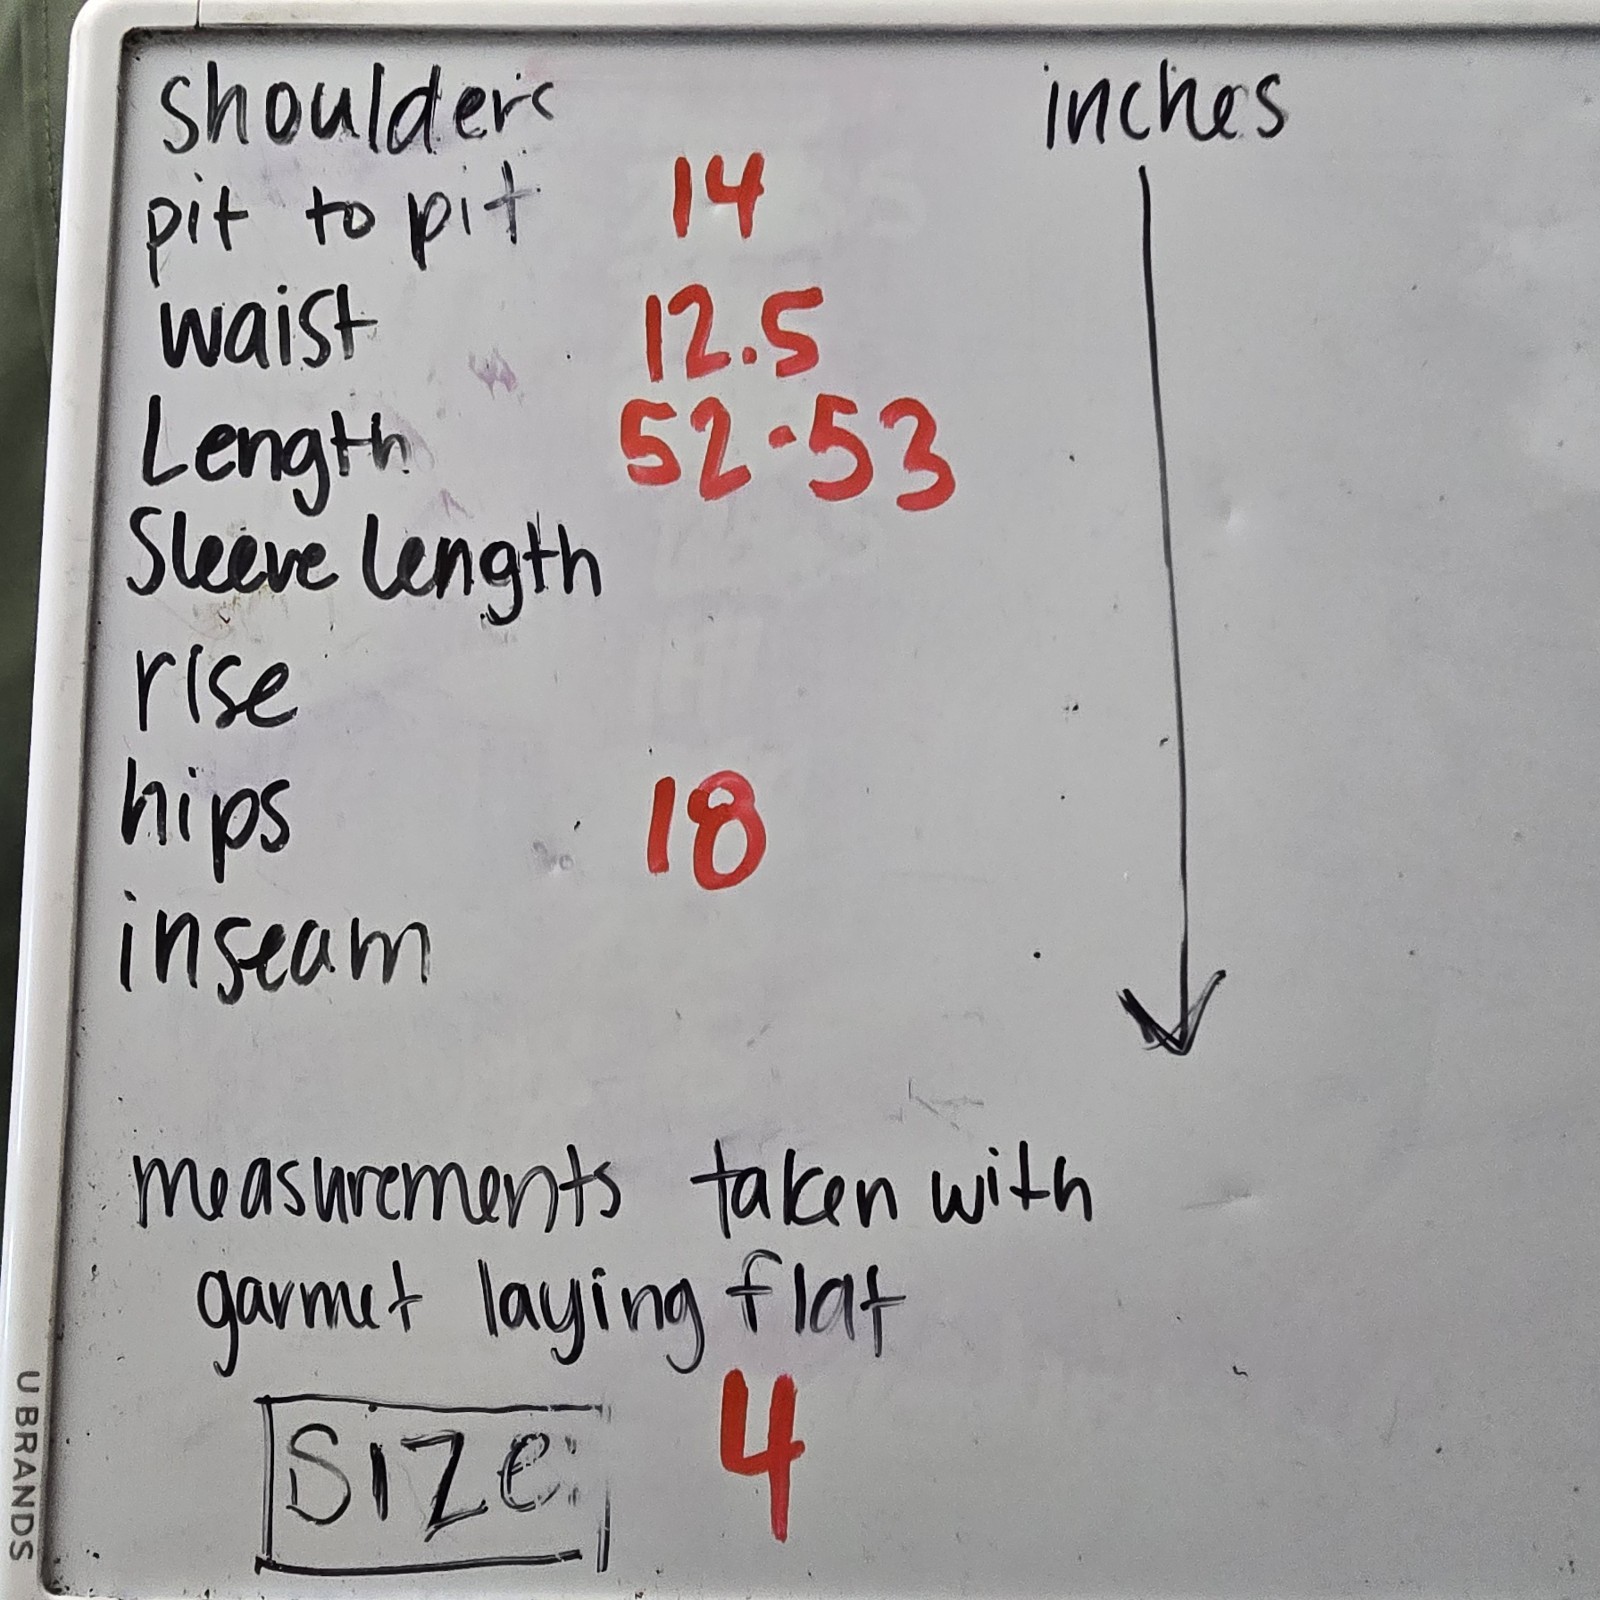 shoulders inches
pit to pit 14
waist 12.5
Length 52-53
Sleeve length
rise
hips 18
inseam
measurements taken with
garmet laying flat
Size: 4
U BRANDS